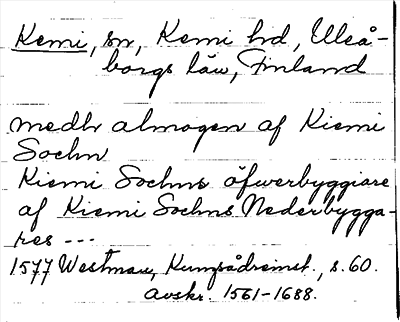 Kemi, sn, Kemi hd, Uleå-
borgs län, Finland
medh almogen af Kiemi
Sochn
Kiemi Sochns öfwerbyggiare
af Kiemi Sochns Nederbygga-
res ---
1577 Westman, , s. 60.
Avskr. 1561-1688.